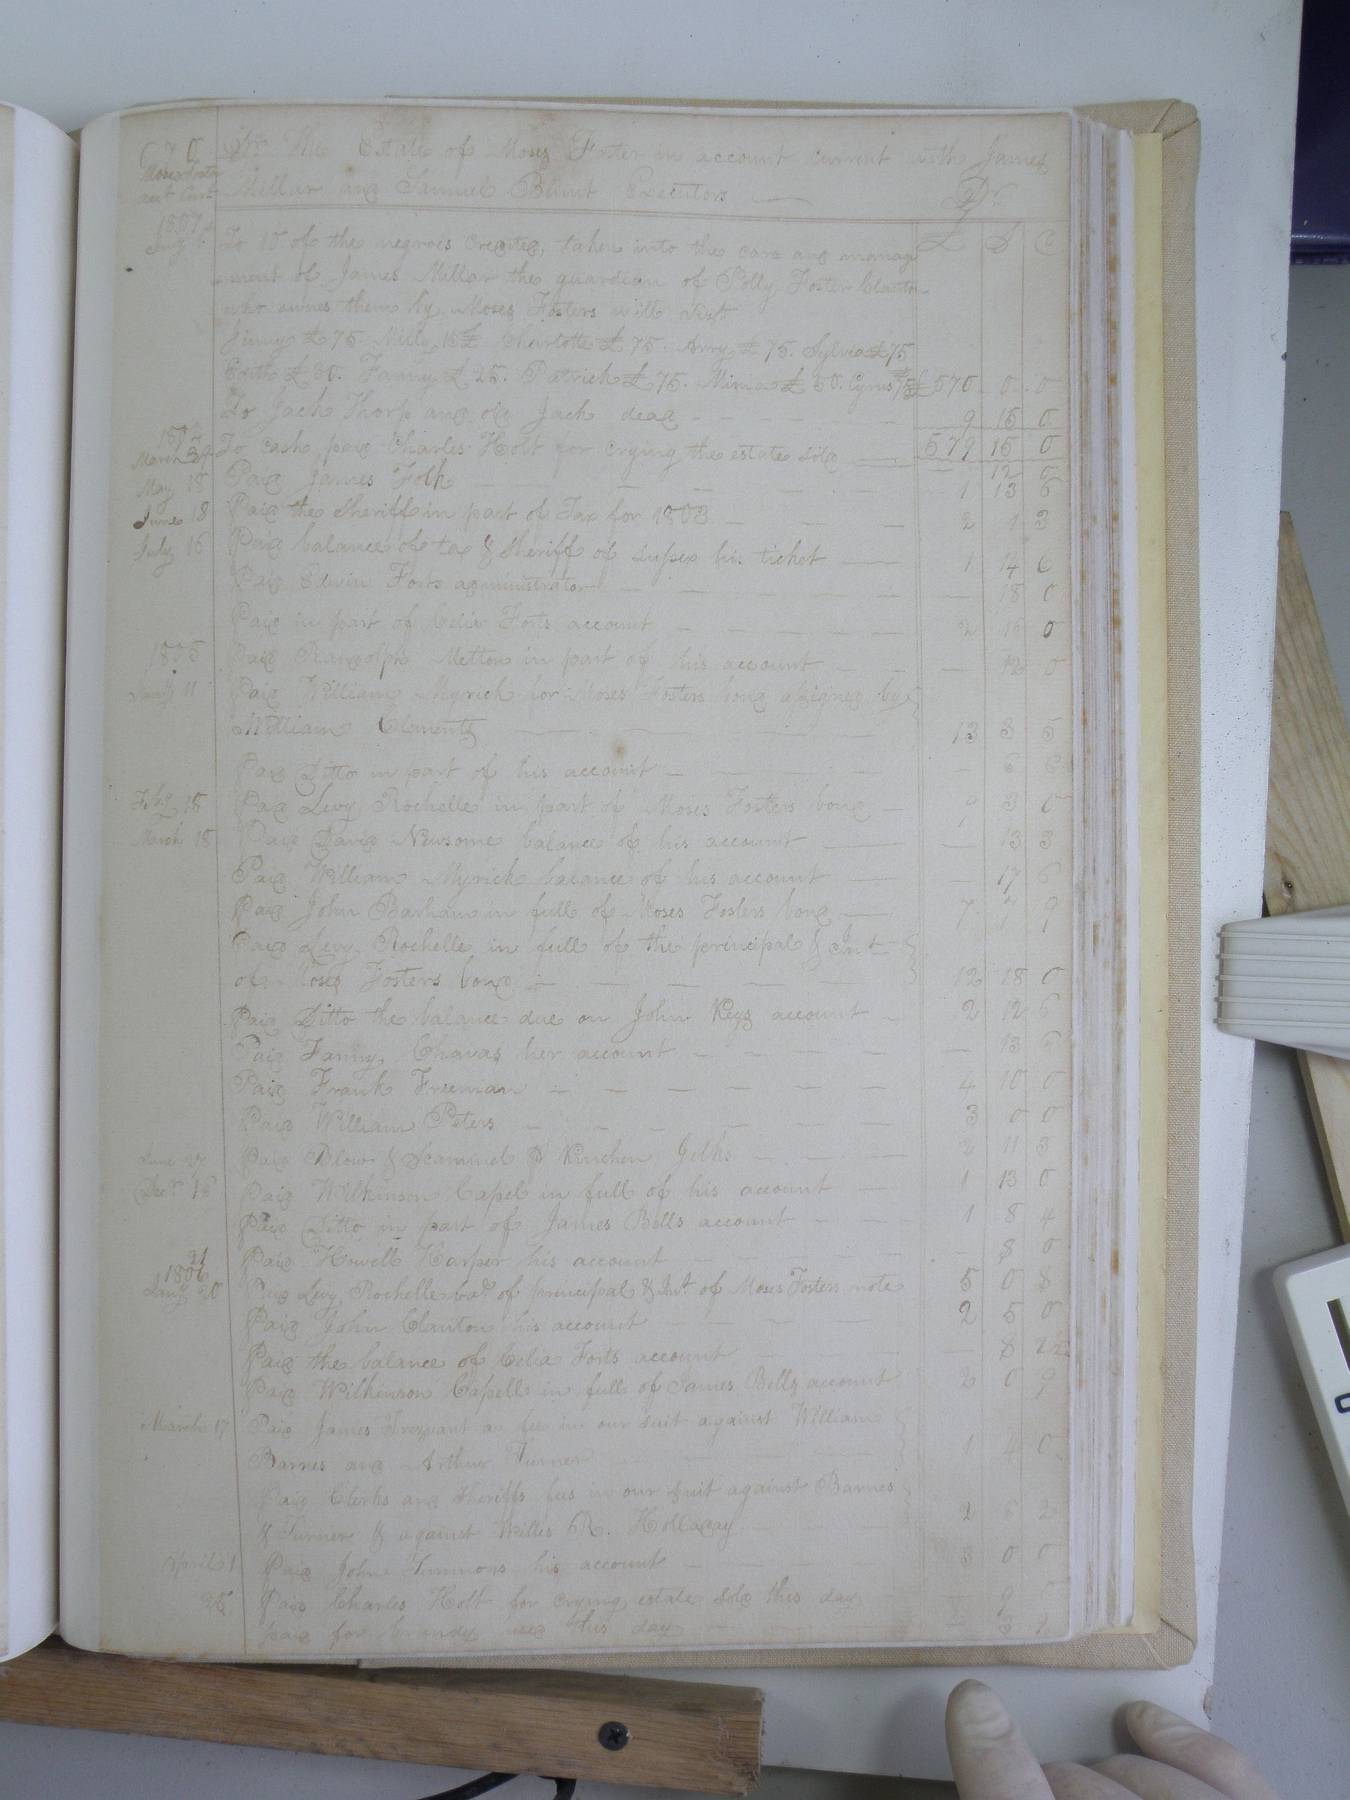 670 Dr. The Estate of Moses Foster in account current with James
Moses Foster
acct Curt Millar and Samuel Blunt Executors Dr.
£ S
To 10 of the negroes credited, taken into the care and manag
ment of James Millar the guardian of Polly Foster Clanton
who ownes them by Moses Fosters will
Jinny £75. Milly 15£ Charlotte £75. Amy £75. Sylvia £75
Edith £30. Fanny £25. Patrick £75. Mima £50. Cyrus £570 . 0 . 0
To Jack Thorp and old Jack dead - - - 9 15 0
579 15 0
March To cash paid Charles Holt for crying the estate sold 12 0
May 18 Paid James Folk - - - 1 13 6
June 18 Paid the Sheriff in part of Tax for 1803 - - 2 1 3
July 16 Paid balance of tax & Sheriff of Sussex his ticket 1 14 6
Paid Edwin Forts administrator - - - 18 0
Paid in part of Celia Forts account - - - 2 16 0
1805 Paid Randolph Metton in part of his account - 12 0
Jany 11 Paid William Myrick for Moses Fosters bond assigned by
William Clements 13 3 5
Paid Ditto in part of his account - - - 6
Feby 18 Paid Levy Rochelle in part of Moses Fosters bond - 3 0
March 18 Paid David Newsome balance of his account - 13 3
Paid William Myrick balance of his account - 17 6
Paid John Barham in full of Moses Fosters bond 7 7 9
Paid Levy Rochelle in full of the principal & Int
of Moses Fosters bond - - - 12 18 0
Paid Ditto the balance due on John Keys account - 2 12 6
Paid Fanny Chavas her account - - - 13 6
Paid Frank Freeman - - - 4 10 0
Paid William Peters - - - 3 0 0
June 27 Paid Blow & Scammel & Kinchen - - 2 11 3
Decr 16 Paid Wilkinson Capel in full of his account - 1 13 0
Paid Ditto in part of James Bells account - 1 8 4
21 Paid Howell Harper his account - - 8 0
1806
Jany 20 Paid Levy Rochelle bale of principal & Int. of Moses Fosters note 5 0 8
Paid John Clanton his account - - 2 5 0
Paid the balance of Celia Forts account - - 8
Paid Wilkinson Capells in full of James Bells account 2 0 9
March 17 Paid James Trezvant a fee in our suit against William
Barnes and Arthur Turner - - 1 4 0
Paid Clerks and Sheriffs fees in our suit against Barnes
& Turner & against Willis R. Hollaway - 2 6 2
April 1 Paid John Simmons his account - 3 0 0
Paid Charles Holt for crying estate sold this day 9
paid for brandy used this day - 3 9